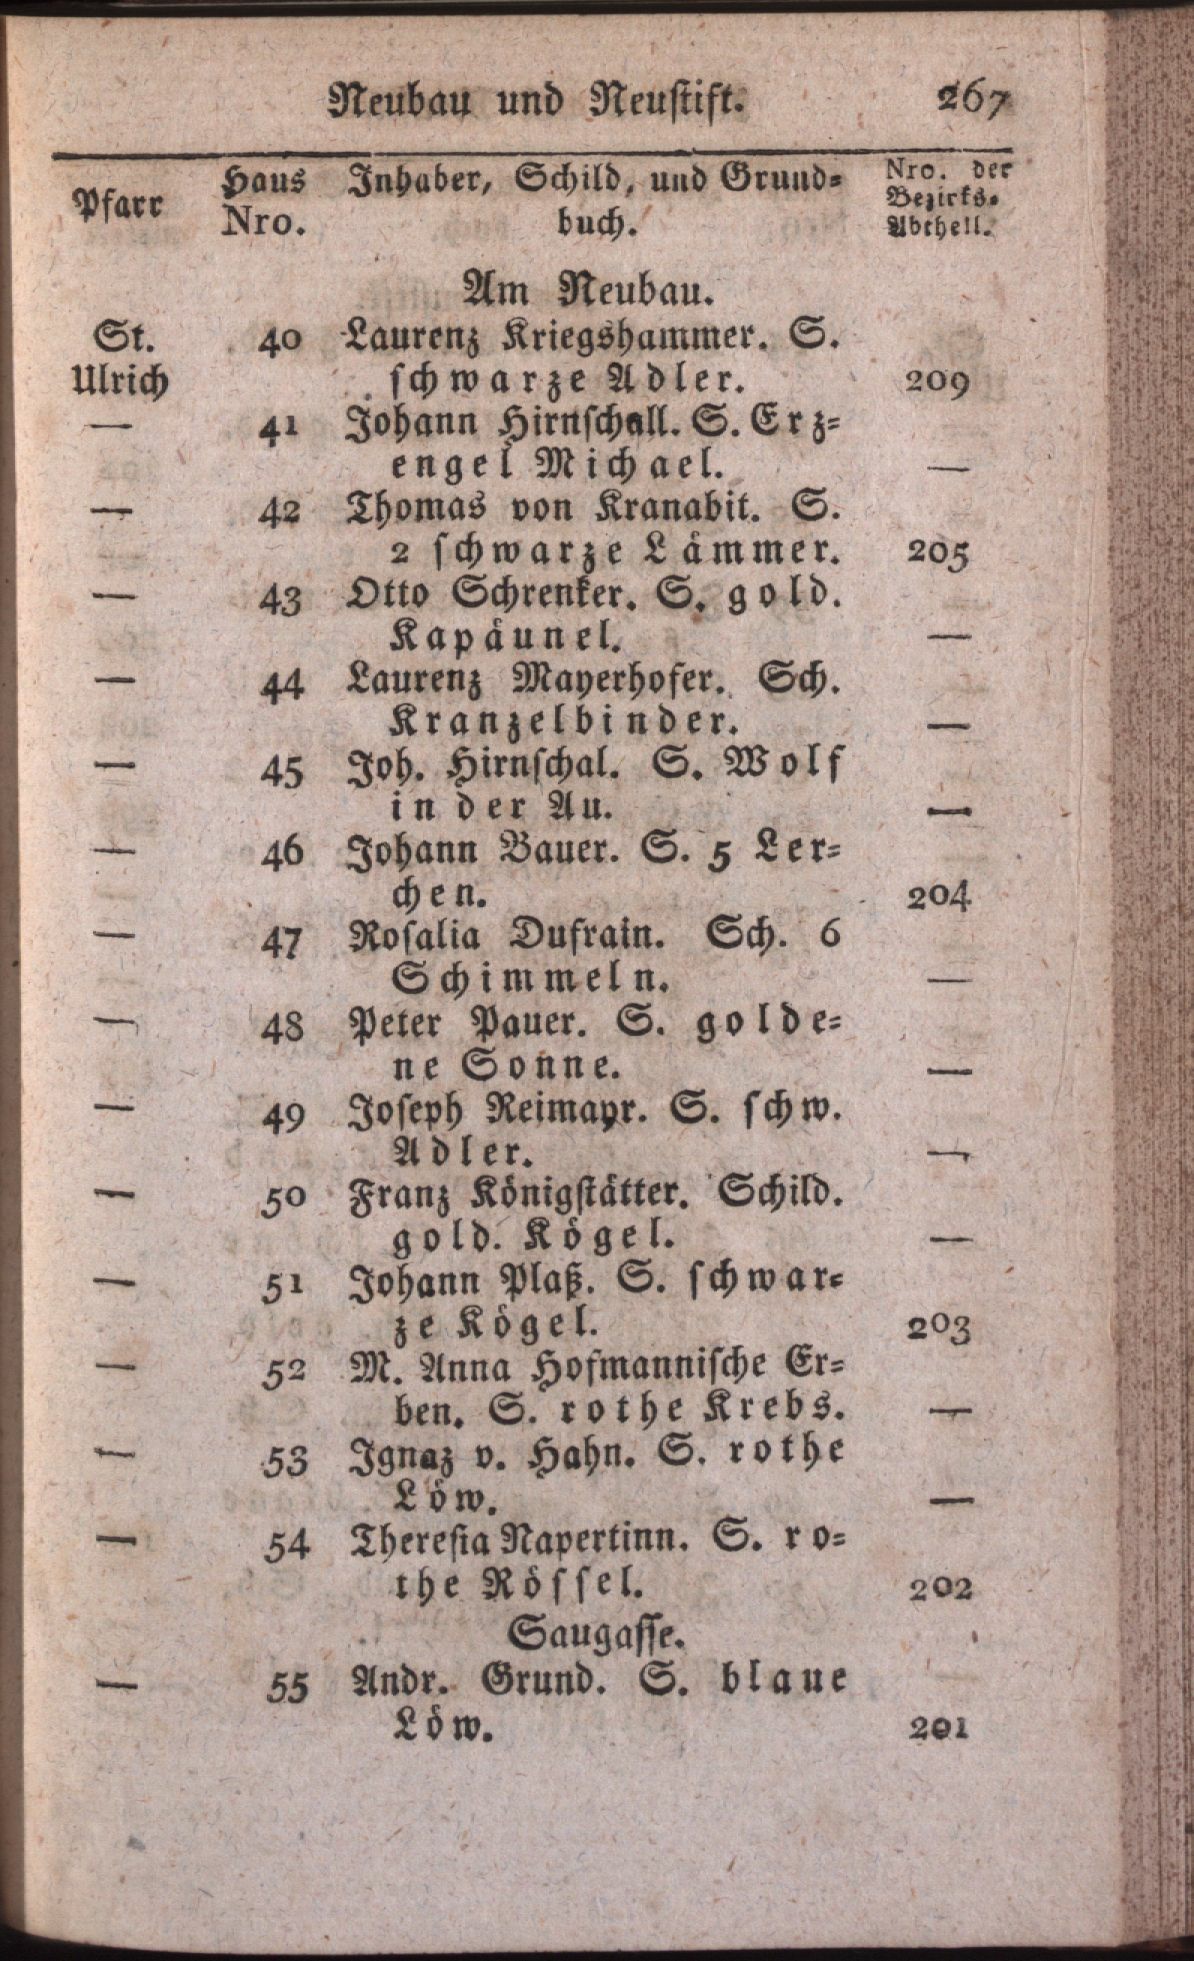 Neubau und Neustift. 267
Pfarr Haus Nro. Inhaber, Schild, und Grund= buch. Nro. der Bezirks= Abtheil.
Am Neubau.
St. 40 Laurenz Kriegshammer. S.
Ulrich schwarze Adler. 209
— 41 Johann Hirnschall. S. Erz=
engel Michael. —
— 42 Thomas von Kranabit. S.
2 schwarze Lämmer. 205
— 43 Otto Schrenker. S. gold.
Kapäunel. —
— 44 Laurenz Mayerhofer. Sch.
Kranzelbinder. —
— 45 Joh. Hirnschal. S. Wolf
in der Au. —
— 46 Johann Bauer. S. 5 Ler=
chen. 204
— 47 Rosalia Dufrain. Sch. 6
Schimmeln. —
— 48 Peter Pauer. S. golde=
ne Sonne. —
— 49 Joseph Reimayr. S. schw.
Adler. —
— 50 Franz Königstätter. Schild.
gold. Kögel. —
— 51 Johann Plaß. S. schwar=
ze Kögel. 203
— 52 M. Anna Hofmannische Er=
ben. S. rothe Krebs. —
— 53 Ignaz v. Hahn. S. rothe
Löw. —
— 54 Theresia Napertinn. S. ro=
the Rössel. 202
Saugasse.
— 55 Andr. Grund. S. blaue
Löw. 201